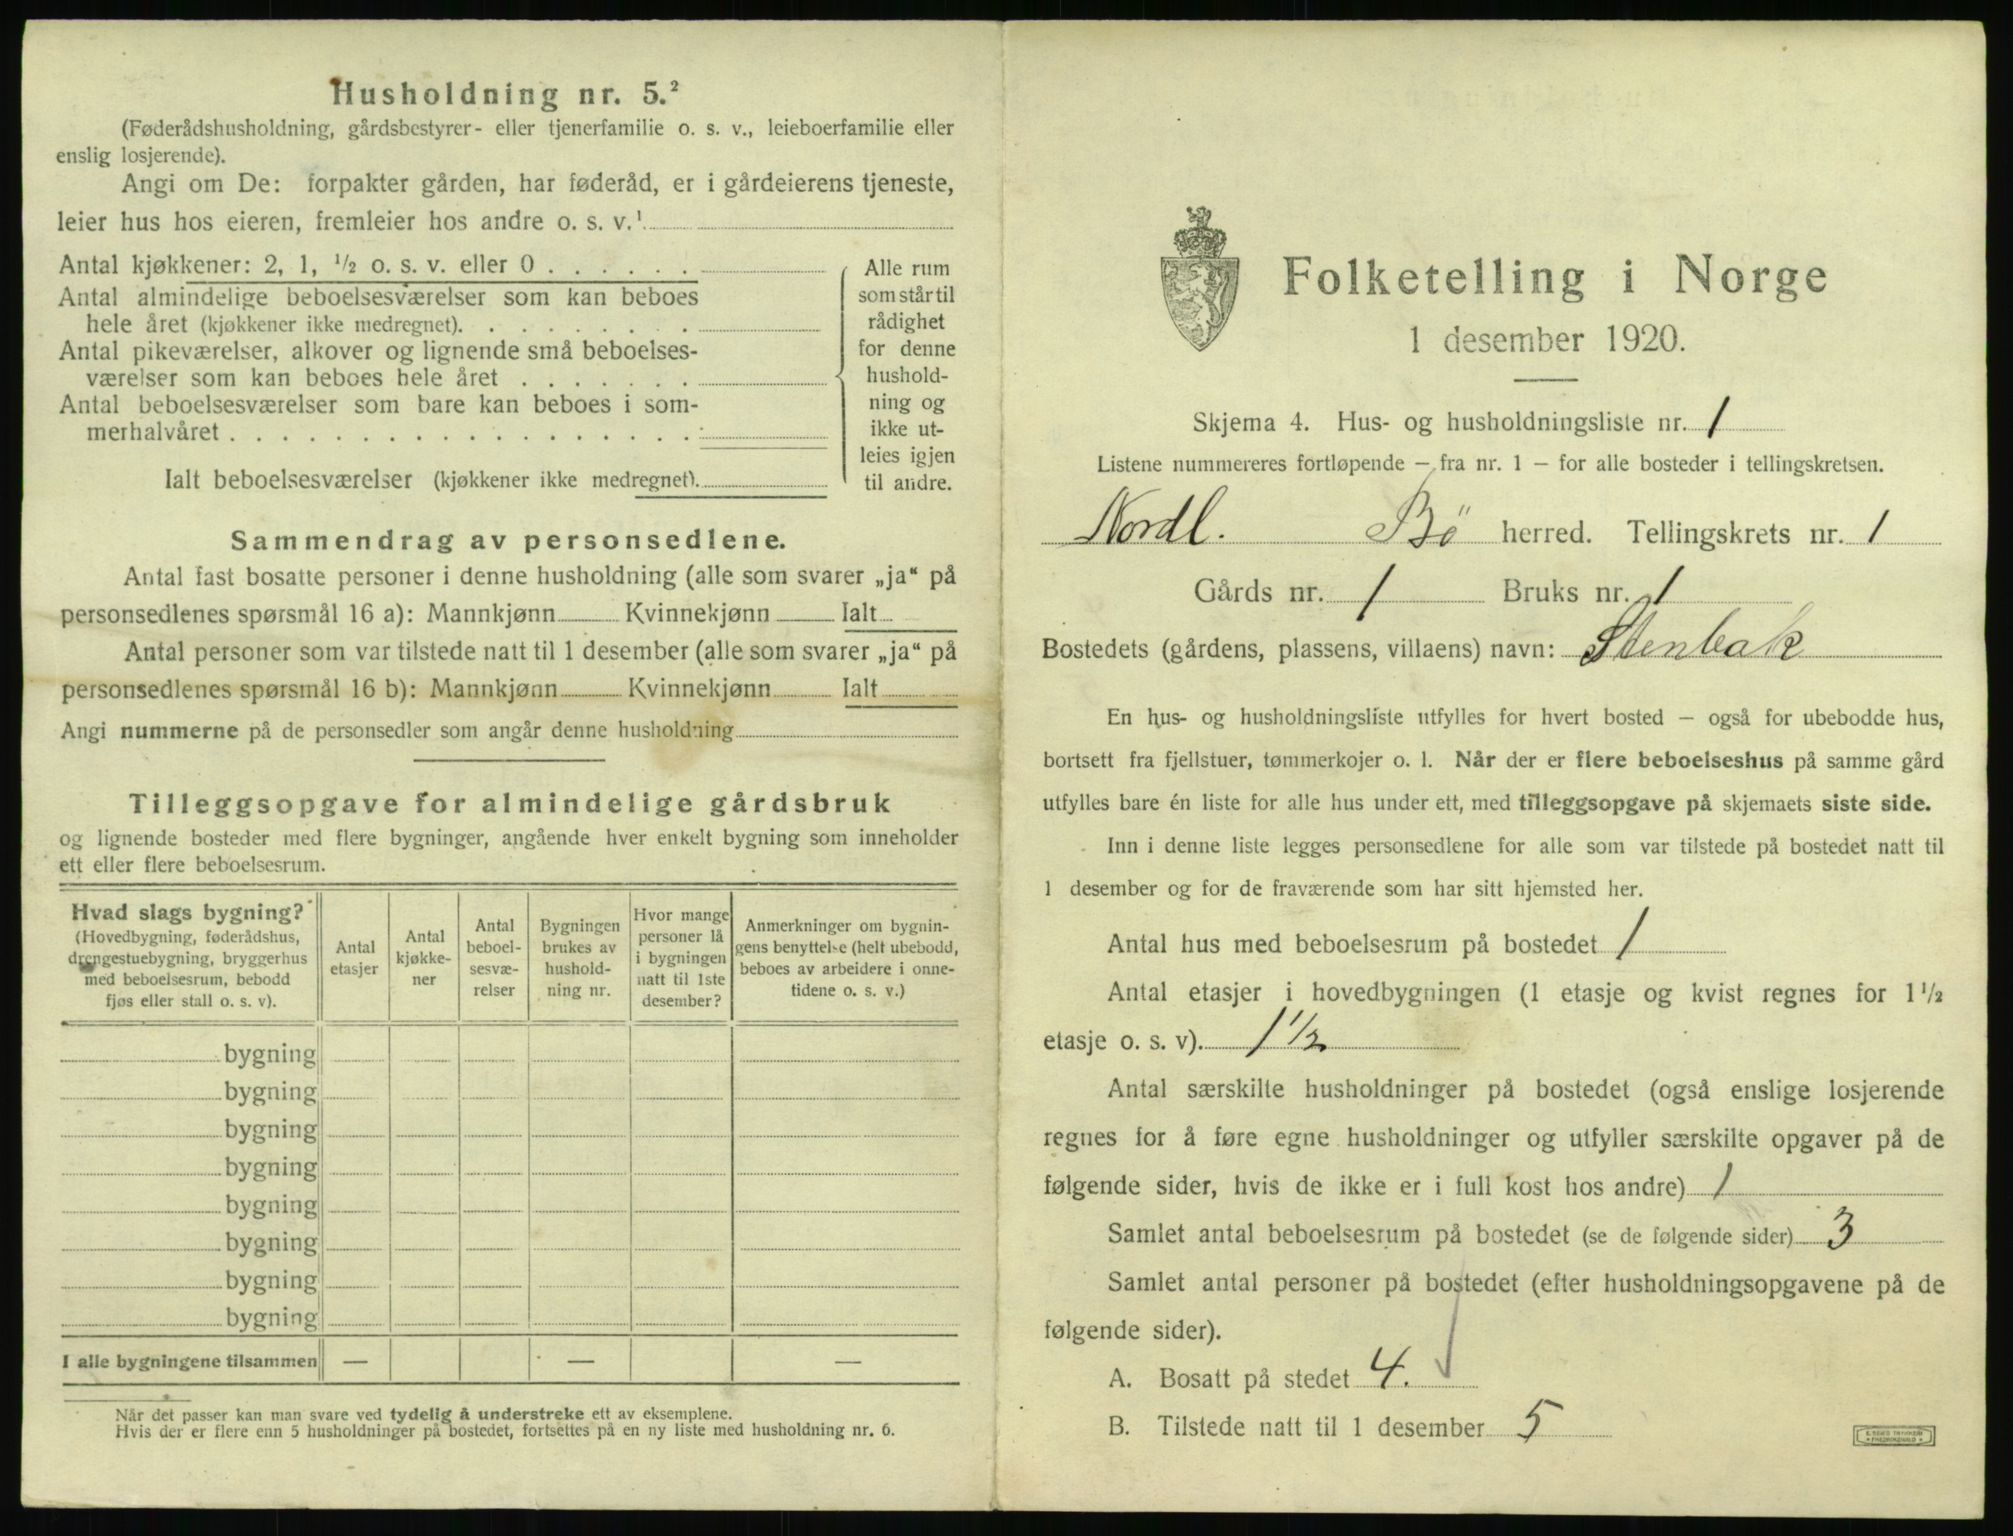 Husholdning nr. 5.²
(Føderådshusholdning, gårdsbestyrer- eller tjenerfamilie o. s. v., leieboerfamilie eller
enslig losjerende).
Angi om De: forpakter gården, har føderåd, er i gårdeierens tjeneste,
leier hus hos eieren, fremleier hos andre o. s. v.¹
Antal kjøkkener: 2, 1, ½ o. s. v. eller 0 . . . . . .
Antal almindelige beboelsesværelser som kan beboes
hele året (kjøkkener ikke medregnet). . . . . . . . .
Antal pikeværelser, alkover og lignende små beboelses-
værelser som kan beboes hele året . . . . . . .
Antal beboelsesværelser som bare kan beboes i som-
merhalvåret . . . . . . . . . . . . . . . . . .
Ialt beboelsesværelser (kjøkkener ikke medregnet).
Alle rum
som står til
rådighet
for denne
hushold-
ning og
ikke ut-
leies igjen
til andre.
Sammendrag av personsedlene.
Antal fast bosatte personer i denne husholdning (alle som svarer „ja“ på
personsedlenes spørsmål 16 a): Mannkjønn Kvinnekjønn Ialt
Antal personer som var tilstede natt til 1 desember (alle som svarer „ja“ på
personsedlenes spørsmål 16 b): Mannkjønn Kvinnekjønn Ialt
Angi nummerne på de personsedler som angår denne husholdning
Tilleggsopgave for almindelige gårdsbruk
og lignende bosteder med flere bygninger, angående hver enkelt bygning som inneholder
ett eller flere beboelsesrum.
Hvad slags bygning?
(Hovedbygning, føderådshus,
drengestuebygning, bryggerhus
med beboelsesrum, bebodd
fjøs eller stall o. s. v).
Antal
etasjer
Antal
kjøkke-
ner
Antal
beboel-
sesvæ-
relser
Bygningen
brukes av
hushold-
ning nr.
Hvor mange
personer lå
i bygningen
natt til 1ste
desember?
Anmerkninger om bygnin-
gens benyttelse (helt ubebodd,
beboes av arbeidere i onne-
tidene o. s. v.)
bygning
bygning
bygning
bygning
bygning
bygning
bygning
bygning
I alle bygningene tilsammen — — —
Når det passer kan man svare ved tydelig å understreke ett av eksemplene.
Hvis der er flere enn 5 husholdninger på bostedet, fortsettes på en ny liste med husholdning nr. 6.
Folketelling i Norge
1 desember 1920.
Skjema 4. Hus- og husholdningsliste nr. 1
Listene nummereres fortløpende — fra nr. 1 — for alle bosteder i tellingskretsen.
Nordl. Bö herred. Tellingskrets nr. 1
Gårds nr. 1 Bruks nr. 1
Bostedets (gårdens, plassens, villaens) navn: Stenbak
En hus- og husholdningsliste utfylles for hvert bosted — også for ubebodde hus,
bortsett fra fjellstuer, tømmerkojer o. l. Når der er flere beboelseshus på samme gård
utfylles bare én liste for alle hus under ett, med tilleggsopgave på skjemaets siste side.
Inn i denne liste legges personsedlene for alle som var tilstede på bostedet natt til
1 desember og for de fraværende som har sitt hjemsted her.
Antal hus med beboelsesrum på bostedet 1
Antal etasjer i hovedbygningen (1 etasje og kvist regnes for 1½
etasje o. s. v). 1½
Antal særskilte husholdninger på bostedet (også enslige losjerende
regnes for å føre egne husholdninger og utfyller særskilte opgaver på de
følgende sider, hvis de ikke er i full kost hos andre) 1
Samlet antal beboelsesrum på bostedet (se de følgende sider) 3
Samlet antal personer på bostedet (efter husholdningsopgavene på de
følgende sider).
A. Bosatt på stedet 4.
B. Tilstede natt til 1 desember 5